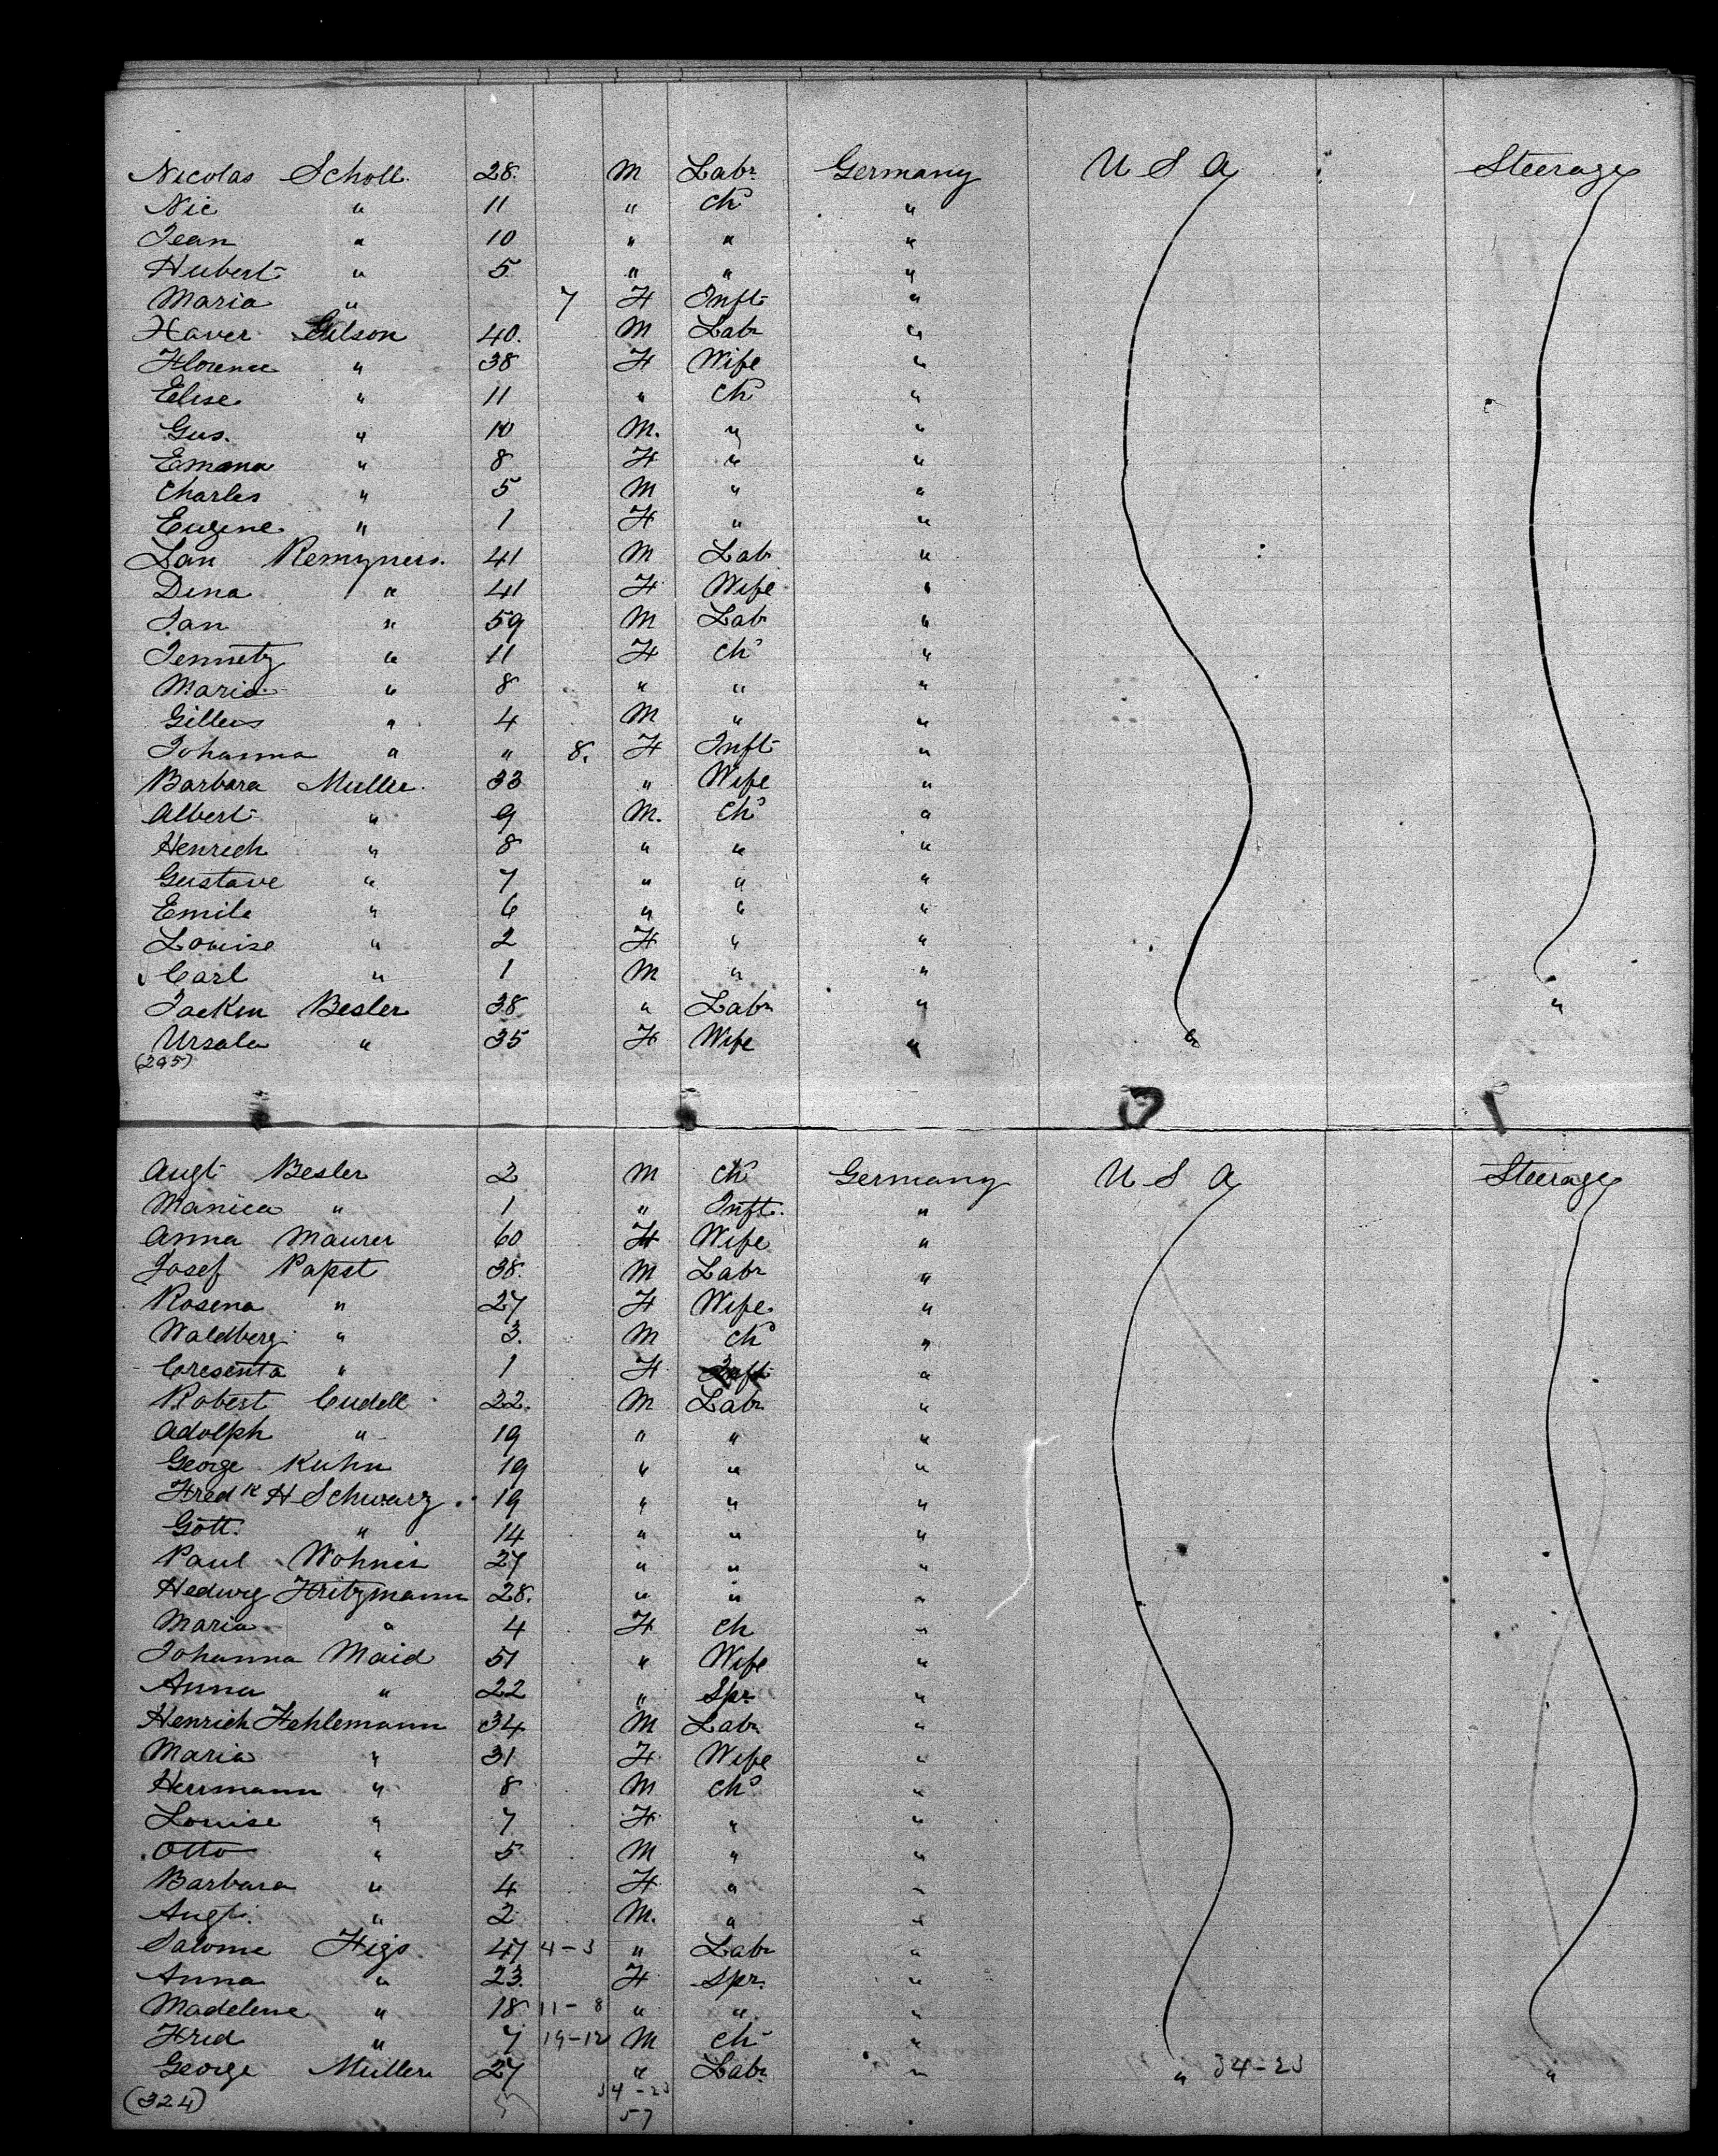 Nicolas Scholl 28 M Labr Germany U S A Steerage
Nic " 11 " Ch "
Jean " 10 " " "
Hubert " 5 " " "
Maria " 7 F Inft "
Xaver Gilson 40 M Labr "
Florence " 38 F Wife "
Elise " 11 " Ch "
Gus. " 10 M. " "
Emma " 8 F " "
Charles " 5 M " "
Eugene " 1 F " "
Jan Remyners. 41 M Lab "
Dina " 41 F Wife "
Jan " 59 M Lab "
Jennetz " 11 F Ch "
Maria " 8 " " "
Gilles " 4 M " "
Johanna " " 8. F Inft "
Barbara Muller 33 " Wife "
Albert " 9 M. Ch "
Henrich " 8 " " "
Gustave " 7 " " "
Emile " 6 " " "
Louise " 2 F " "
Carl " 1 M " "
Besler 38 " Labr " "
Ursala " 35 F Wife " "
(295)
Augt Besler 2 M Ch Germany U S A Steerage
Manica " 1 " Inft. "
Anna Maurer 60 F Wife "
Josef Papst 38. M Labr "
Rosena " 27 F Wife "
Waldberg " 3. M Ch "
Cresenta " 1 F Inft "
Robert Cudell 22. M Labr "
Adolph " 19 " " "
George Kuhn 19 " " "
Fredk H Schwarz 19 " " "
Gott. " 14 " " "
Paul Wohner 27 " " "
Hedwig Fritzmann 28. " " "
Maria " 4 F Ch "
Johanna Maid 51 " Wife "
Anna " 22 " Spr "
Henrich Fehlemann 34 M Labr "
Maria " 31 F Wife "
Herrmann " 8 M Ch "
Louise " 7 F " "
Otto " 5 M " "
Barbara " 4 F " "
Augt. " 2 M. " "
Salome Figs 47 4-3 " Labr "
Anna " 23. F Spr. "
Madelene " 18 11-8 " " "
Fred " 7 19-12 M Ch "
George Muller 27 " Labr " " 34-23 "
(324) 34-23
57